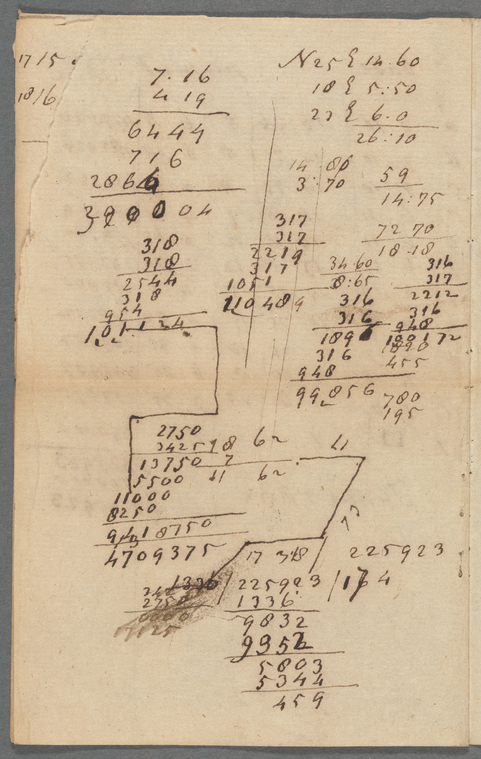 1715
1816
7.16
4 19
6444
716
2864
04
318
318
2544
318
954
101124
N 25 E 14.60
18 E 5:50
23 E 6.0
26:10
14 80
3:70
59
14:75
317
317
2219
317
1051
110489
72 70
18.18
3460
8:65
316
316
1896
316
948
99856
316
317
2212
316
948
100172
1820
455
780
195
2750
3425
13750
5500
11000
8250
9418750
4709375
98 62
7
11 62
11
17 318
73
225923
1336
2750
1336
225923 / 164
1336
9832
9352
5803
5344
459